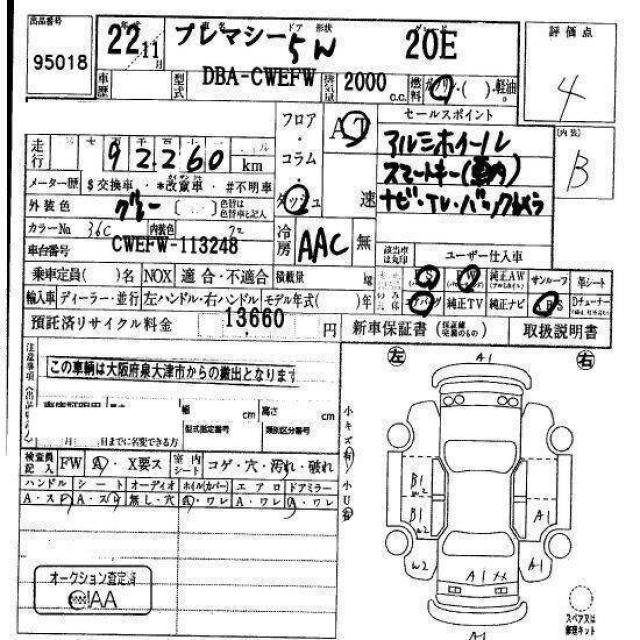 出品番号 95018
22年 11月
車名 プレマシー
ドア 形状 5W
グレード 20E
評価点 4
車歴
型式 DBA-CWEFW
排気量 2000 c.c.
燃料 ガソリン・( )・軽油
セールスポイント
アルミホイール
スマートキー(車内)
ナビ・TV・バックカメラ
[内装] B
フロア・コラム・ダッシュ
A7 速
走行 92260 km
メーター歴 $交換車・*改竄車・#不明車
外装色 グレー ( ) 色替は色替車と記入
カラーNo 36C 内装色
冷房 AAC 無
車台番号 CWEFW-113248
該当車は丸印
ユーザー仕入車
PS PW 純正AW (アルミホイル) サンルーフ 革シート
エアバッグ 純正TV 純正ナビ ABS Dチューナー
乗車定員( )名 NOX 適合・不適合 積載量 kg
輸入車 ディーラー・並行 左ハンドル・右ハンドル モデル年式( )年
預託済リサイクル料金 13660 円
新車保証書 (保証継承完備のもの) 取扱説明書
注意事項
この車輌は大阪府泉大津市からの搬出となります
幅 cm 高さ cm
型式指定番号 類別区分番号
月 日までに名変できる方
検査員記入 FW A・X要ス 室内シート コゲ・穴・汚れ・破れ
ハンドル シート オーディオ ホイル(カバー) エアロ ドアミラー
A・スレ A・スレ 無し・穴 A・ワレ A・ワレ A・ワレ
小キズ有 小U有
オークション査定済
AA
左 右
A1
B1
W2
B1
W2
W2
A1
A1
A1
A1
スペアタイヤ